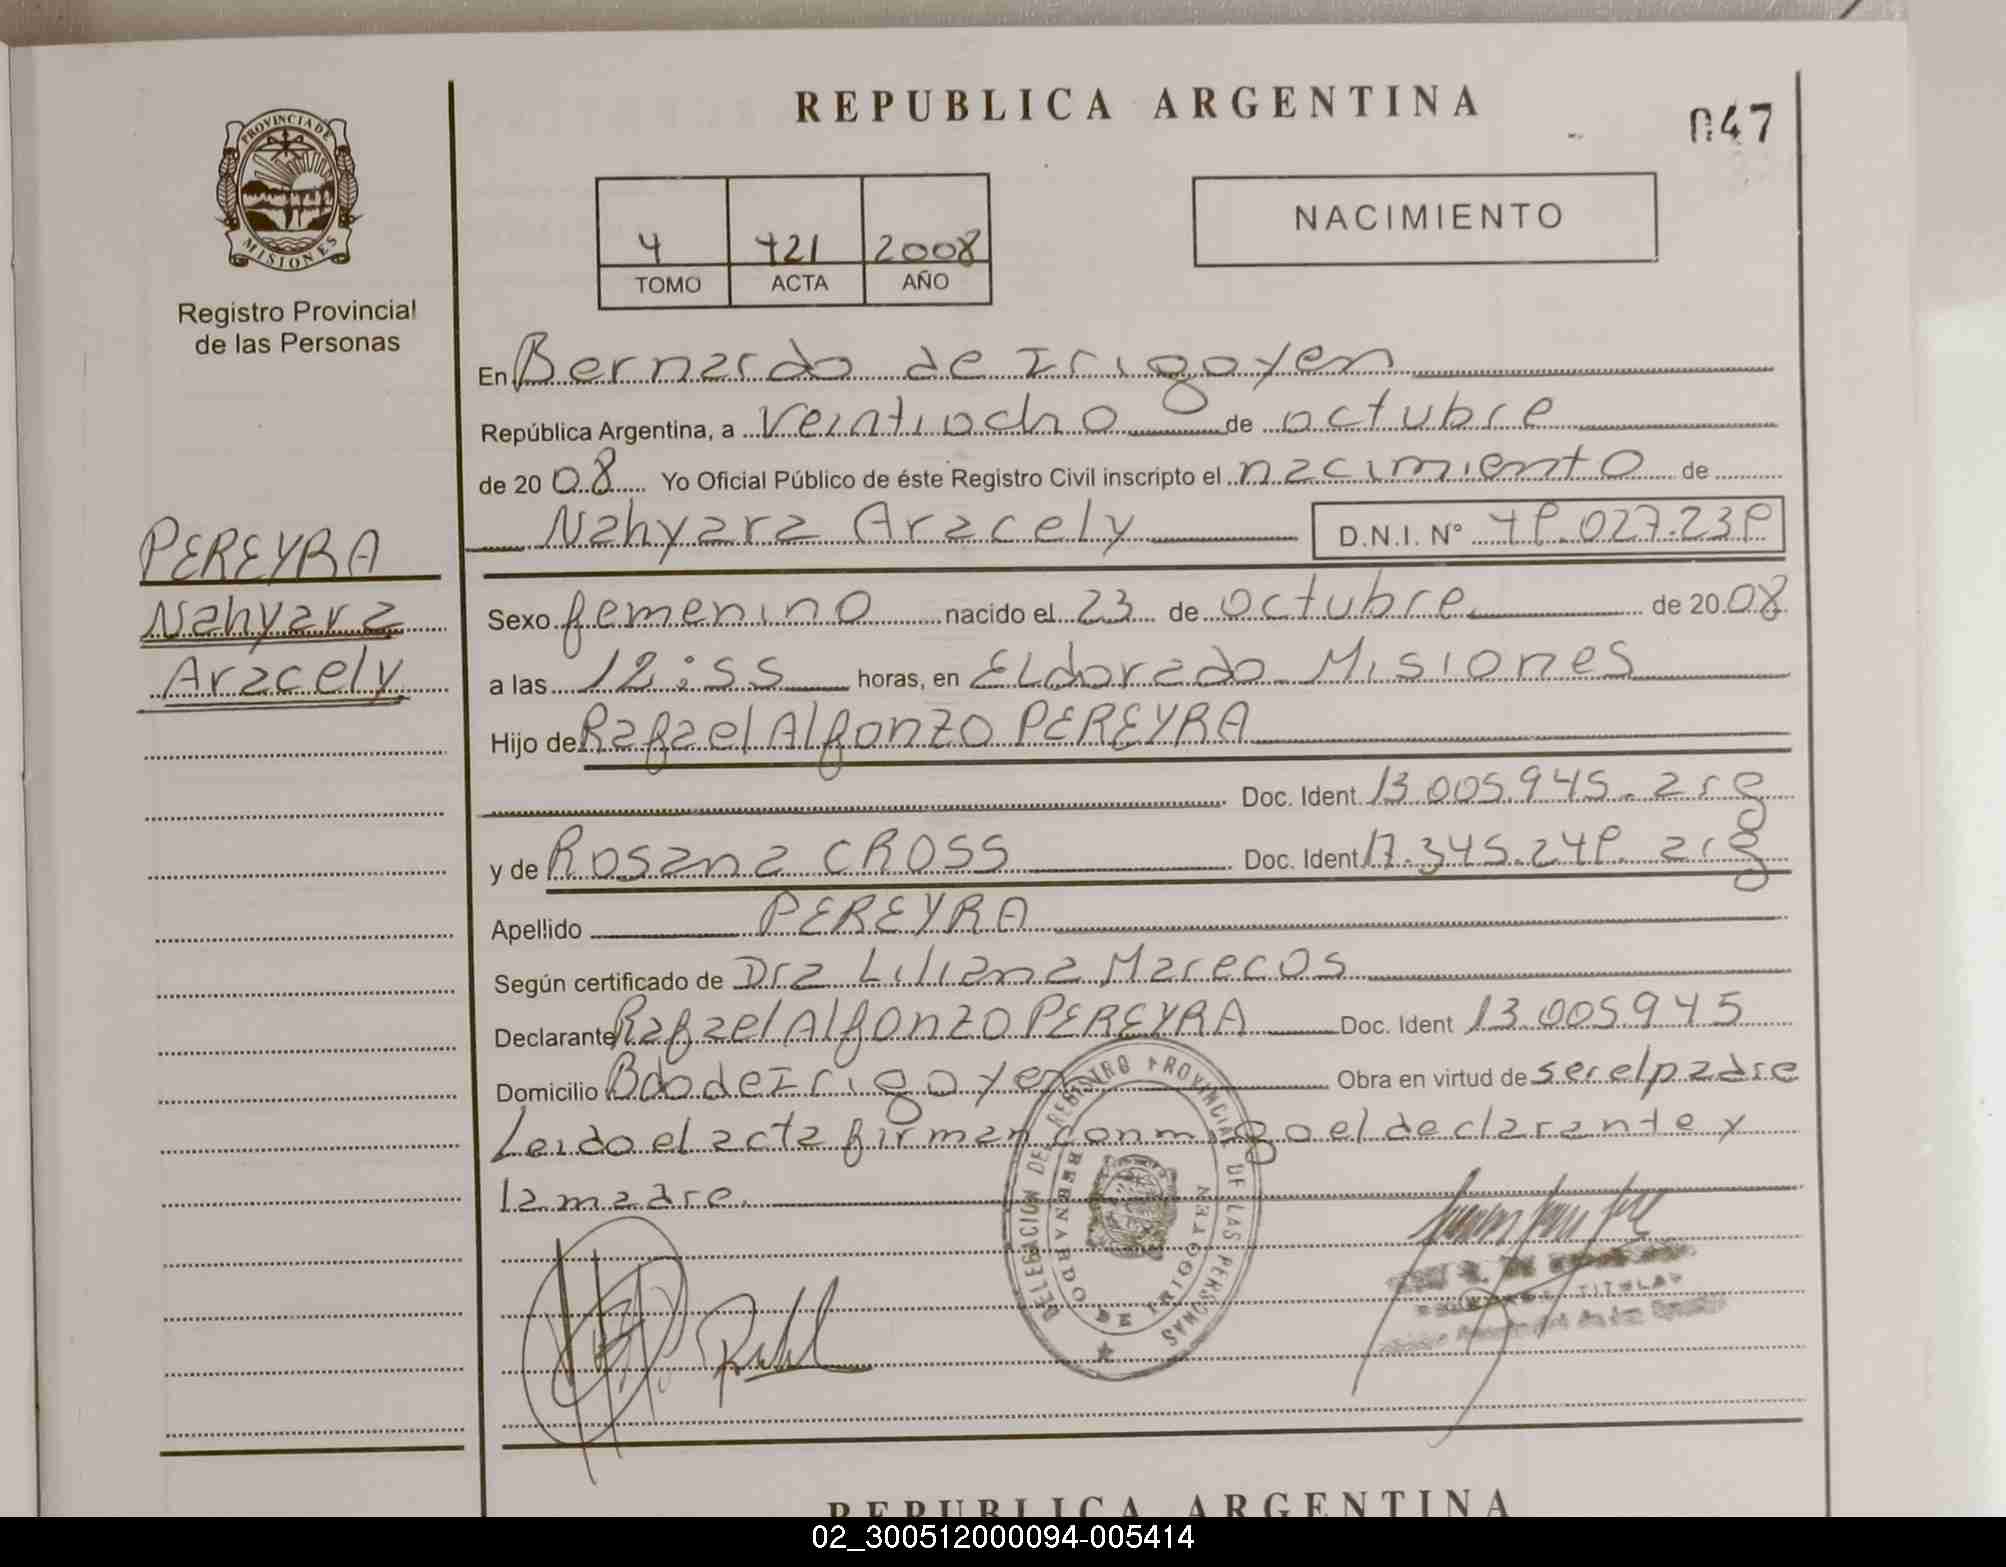 REPUBLICA ARGENTINA
047
PROVINCIA DE
MISIONES
Registro Provincial
de las Personas
4 421 2008
TOMO ACTA AÑO
NACIMIENTO
En Bernardo de Irigoyen
República Argentina, a Veintiocho de octubre
de 20 08 Yo Oficial Público de éste Registro Civil inscripto el nacimiento de
Nahyara Aracely D.N.I. Nº 49.027.239
PEREYRA
Nahyara
Aracely
Sexo femenino nacido el 23 de octubre de 20 08
a las 12:55 horas, en Eldorado Misiones
Hijo de Rafael Alfonzo PEREYRA
Doc. Ident. 13.005.945. arg
y de Rosana CROSS Doc. Ident 17.345.249. arg
Apellido PEREYRA
Según certificado de Dra Liliana Marecos
Declarante Rafael Alfonzo PEREYRA Doc. Ident 13.005945
Domicilio Bdo de Irigoyen Obra en virtud de ser el padre
Leido el acta firman conmigo el declarante y
la madre.
DELEGACION DEL REGISTRO PROVINCIAL DE LAS PERSONAS
BERNARDO DE IRIGOYEN
TITULAR
REPUBLICA ARGENTINA
02_300512000094-005414